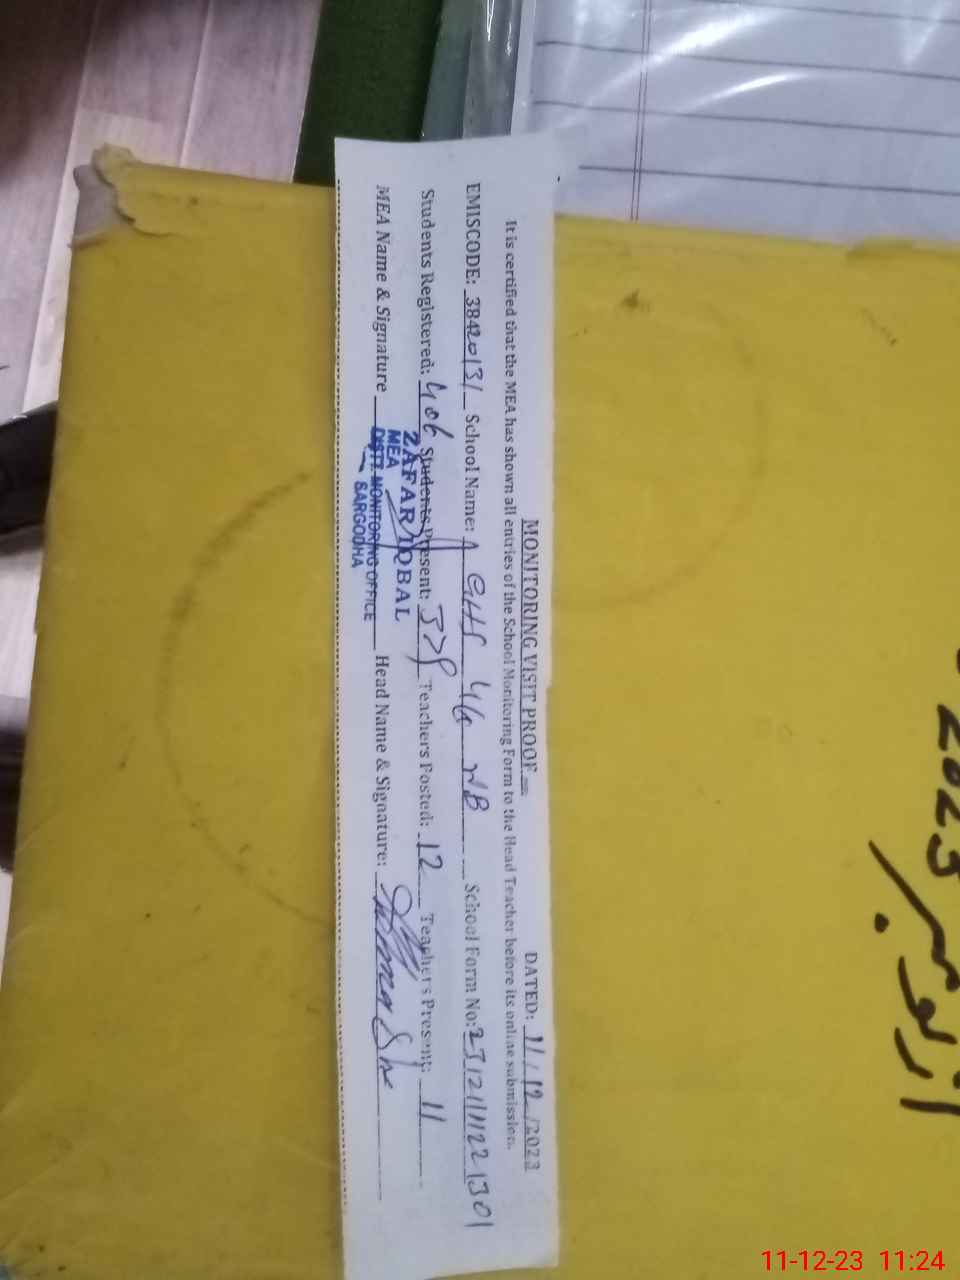 MONITORING VISIT PROOF DATED: 11/12/2023
It is certified that the MEA has shown all entries of the School Monitoring Form to the Head Teacher before its online submission.
EMISCODE: 38420131 School Name: GHS 46 NB School Form No:
Students Registered: 406 Students Present: Teachers Posted: 12 Teachers Present: 11
MEA Name & Signature Head Name & Signature:
ZAFAR IQBAL
MEA
DISTT. MONITORING OFFICE
SARGODHA
2023
از نومبر
11-12-23 11:24